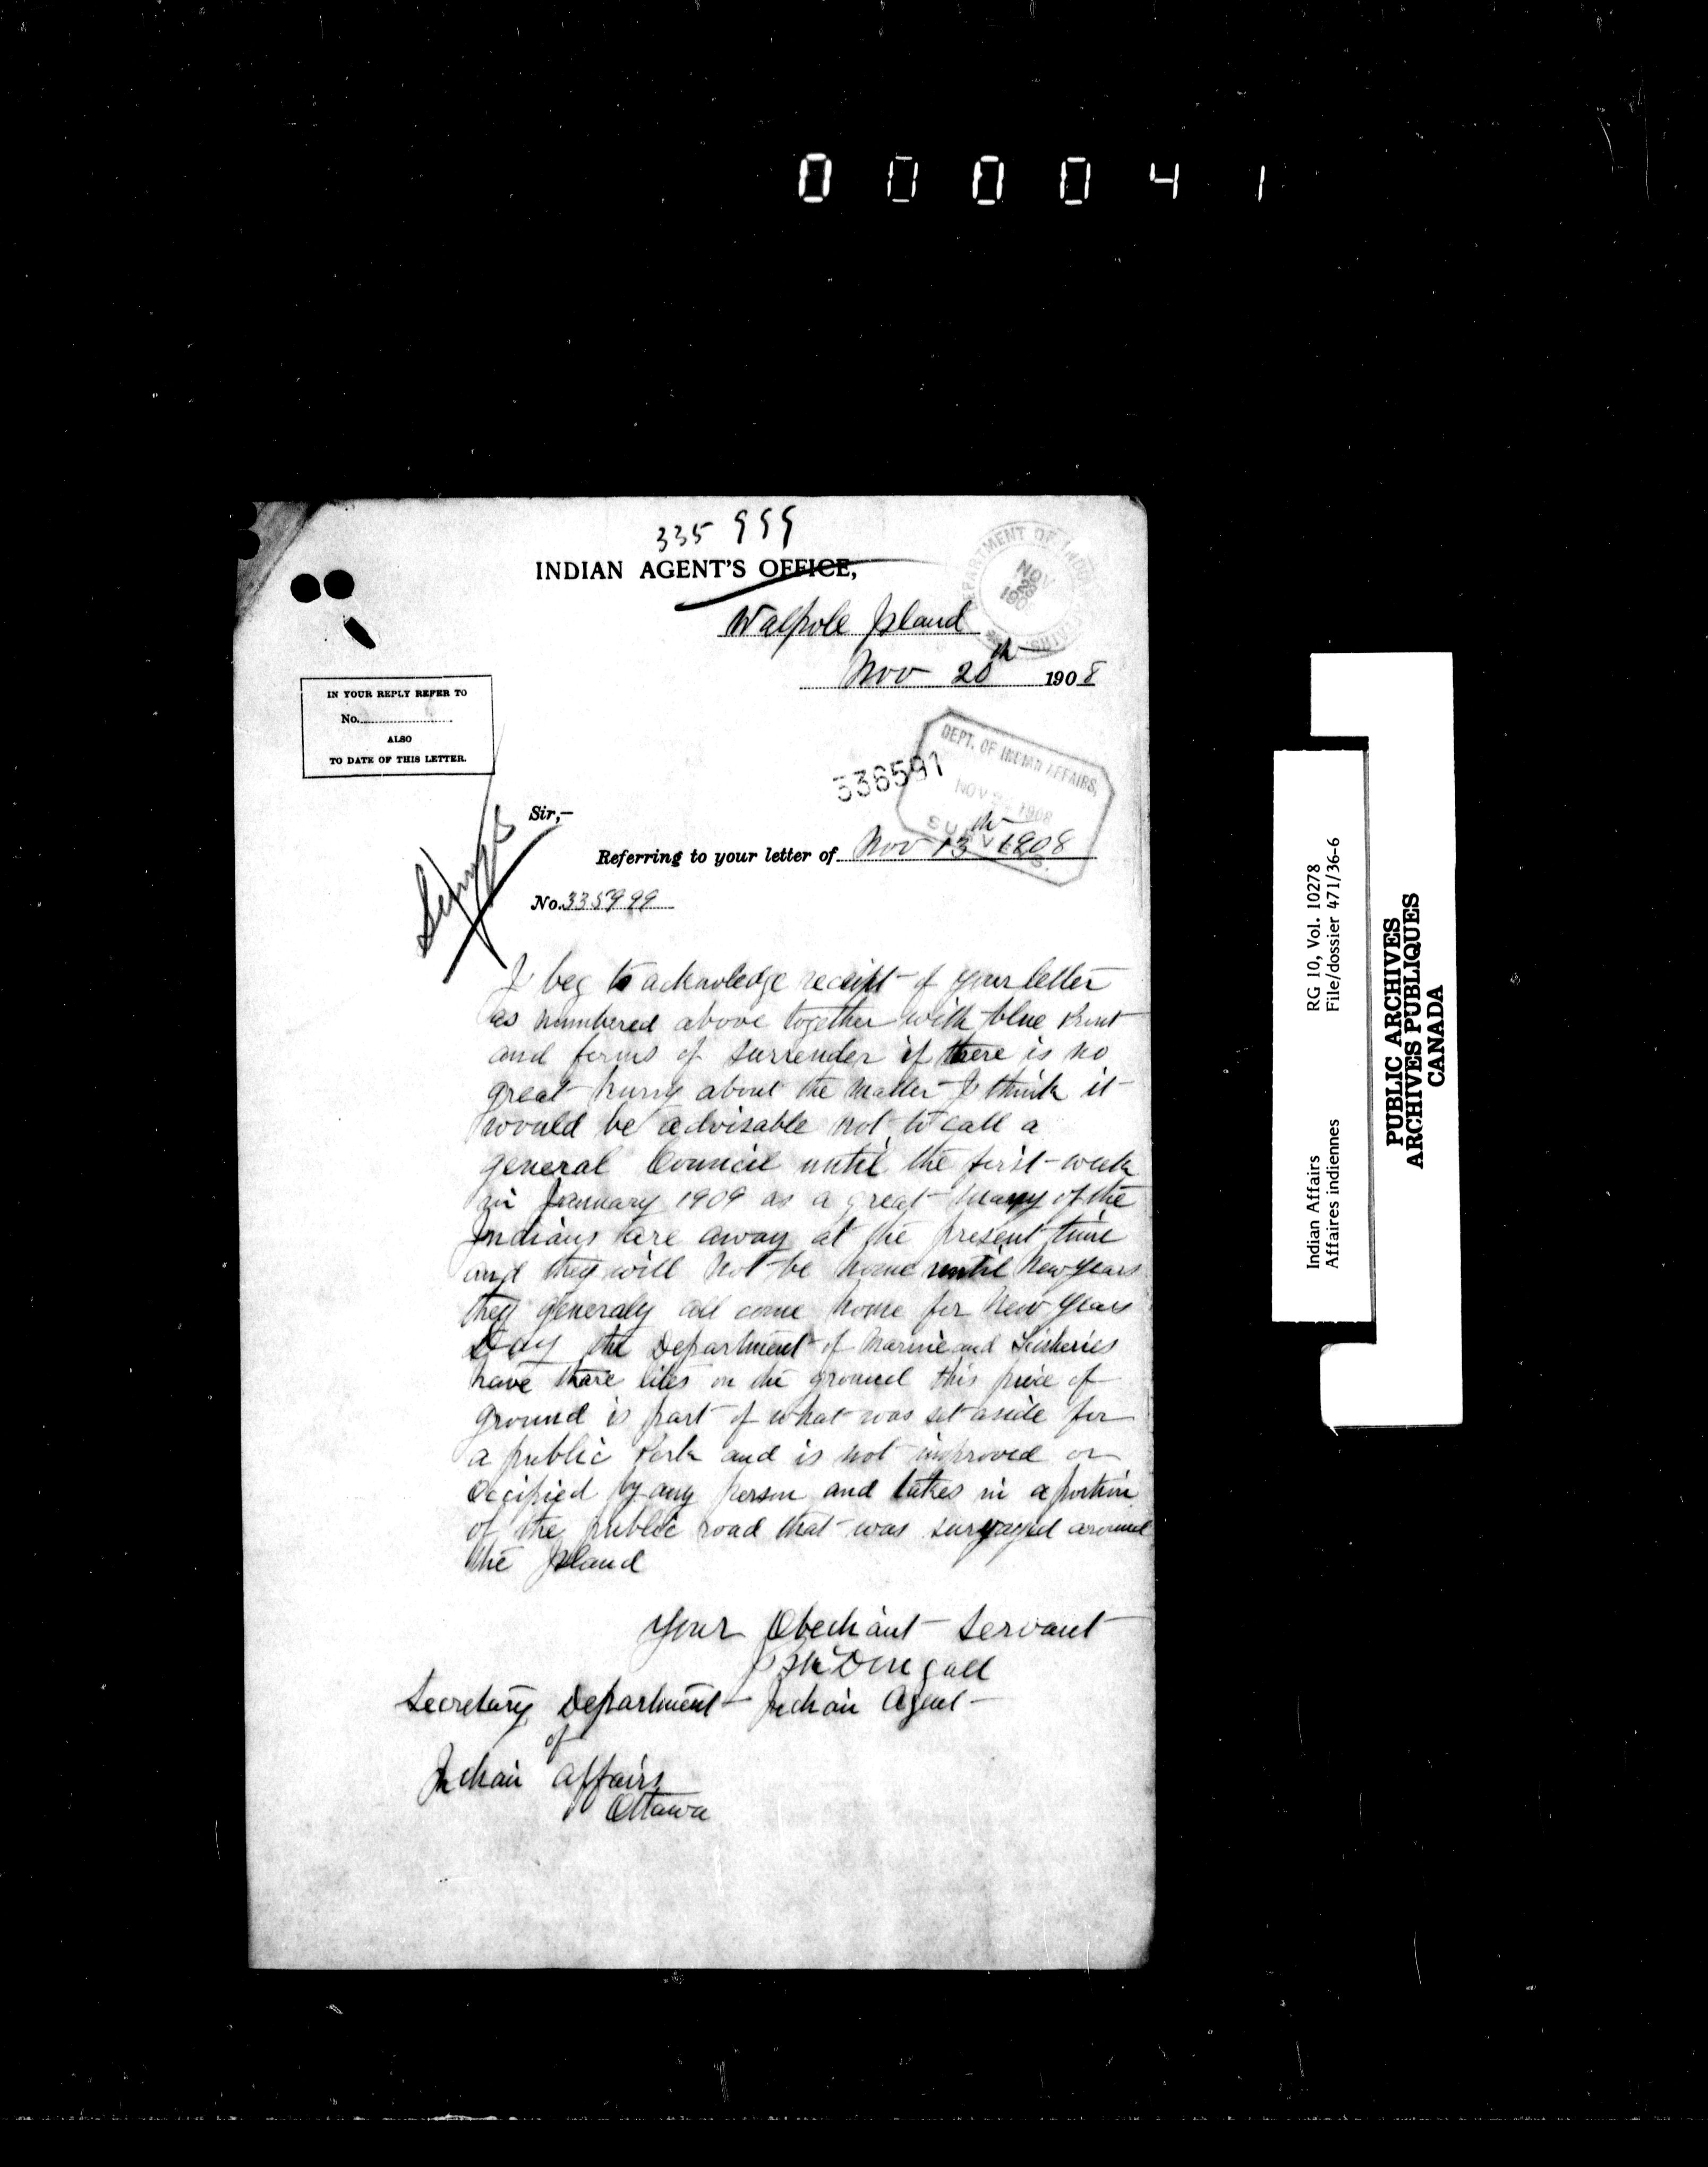 000041
335 999
INDIAN AGENT'S OFFICE,
Walpole Island
Nov 20th 1908
DEPARTMENT OF INDIAN AFFAIRS
NOV
1908
IN YOUR REPLY REFER TO
No.
ALSO
TO DATE OF THIS LETTER.
336591
DEPT. OF INDIAN AFFAIRS,
NOV 1908
SURVEYS.
Sir,—
Referring to your letter of Nov 13th 1908
No. 335999
I beg to acknowledge receipt of your letter
as numbered above together with blue Print
and forms of surrender if there is no
great hurry about the matter I think it
would be advisable not to call a
general Council until the first week
in January 1909 as a great many of the
Indians are away at the present time
and they will not be home until New years
they generaly all come home for New Years
Day the Department of Marine and Fisheries
have thare lites on the ground this piece of
ground is part of what was set aside for
a public Park and is not improved or
Occipied by any person and takes in a portion
of the public road that was surveyed around
the Island
Your Obediant Servant
J McDougall
Secretary Department Indian Agent
of
Indian Affairs
Ottawa
Indian Affairs RG 10, Vol. 10278
Affaires indiennes File/dossier 471/36-6
PUBLIC ARCHIVES
ARCHIVES PUBLIQUES
CANADA